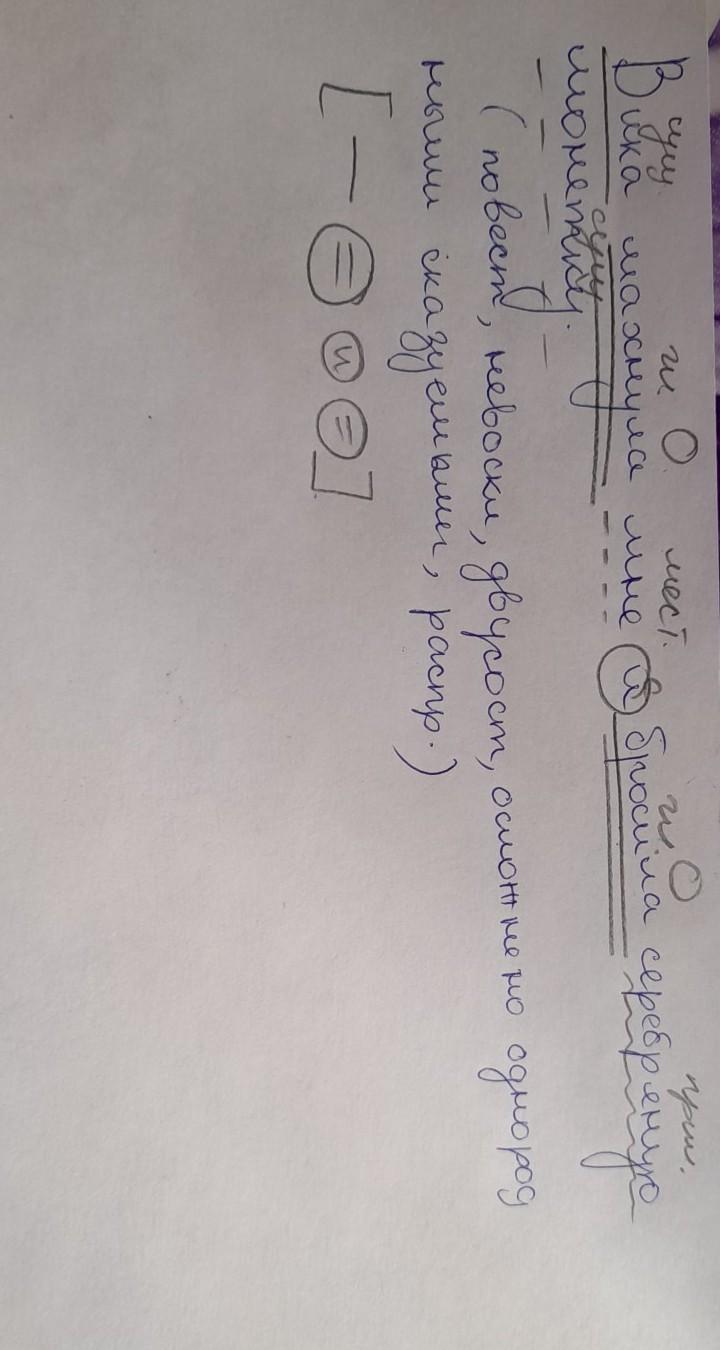 сущ. гл. О мест. гл. О прил.
Вика махнула мне и бросила серебряную
сущ
монетку.
(повест, невоскл, двусост, осложнено однород
ными сказуемыми, распр.)
[— = и =]